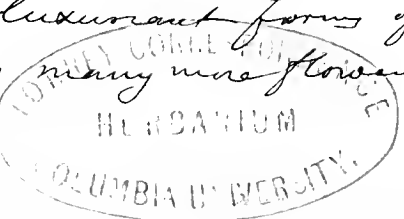 luxuriant forms of
many more flowers
TORREY CORRESPONDENCE
HERBARIUM
COLUMBIA UNIVERSITY.